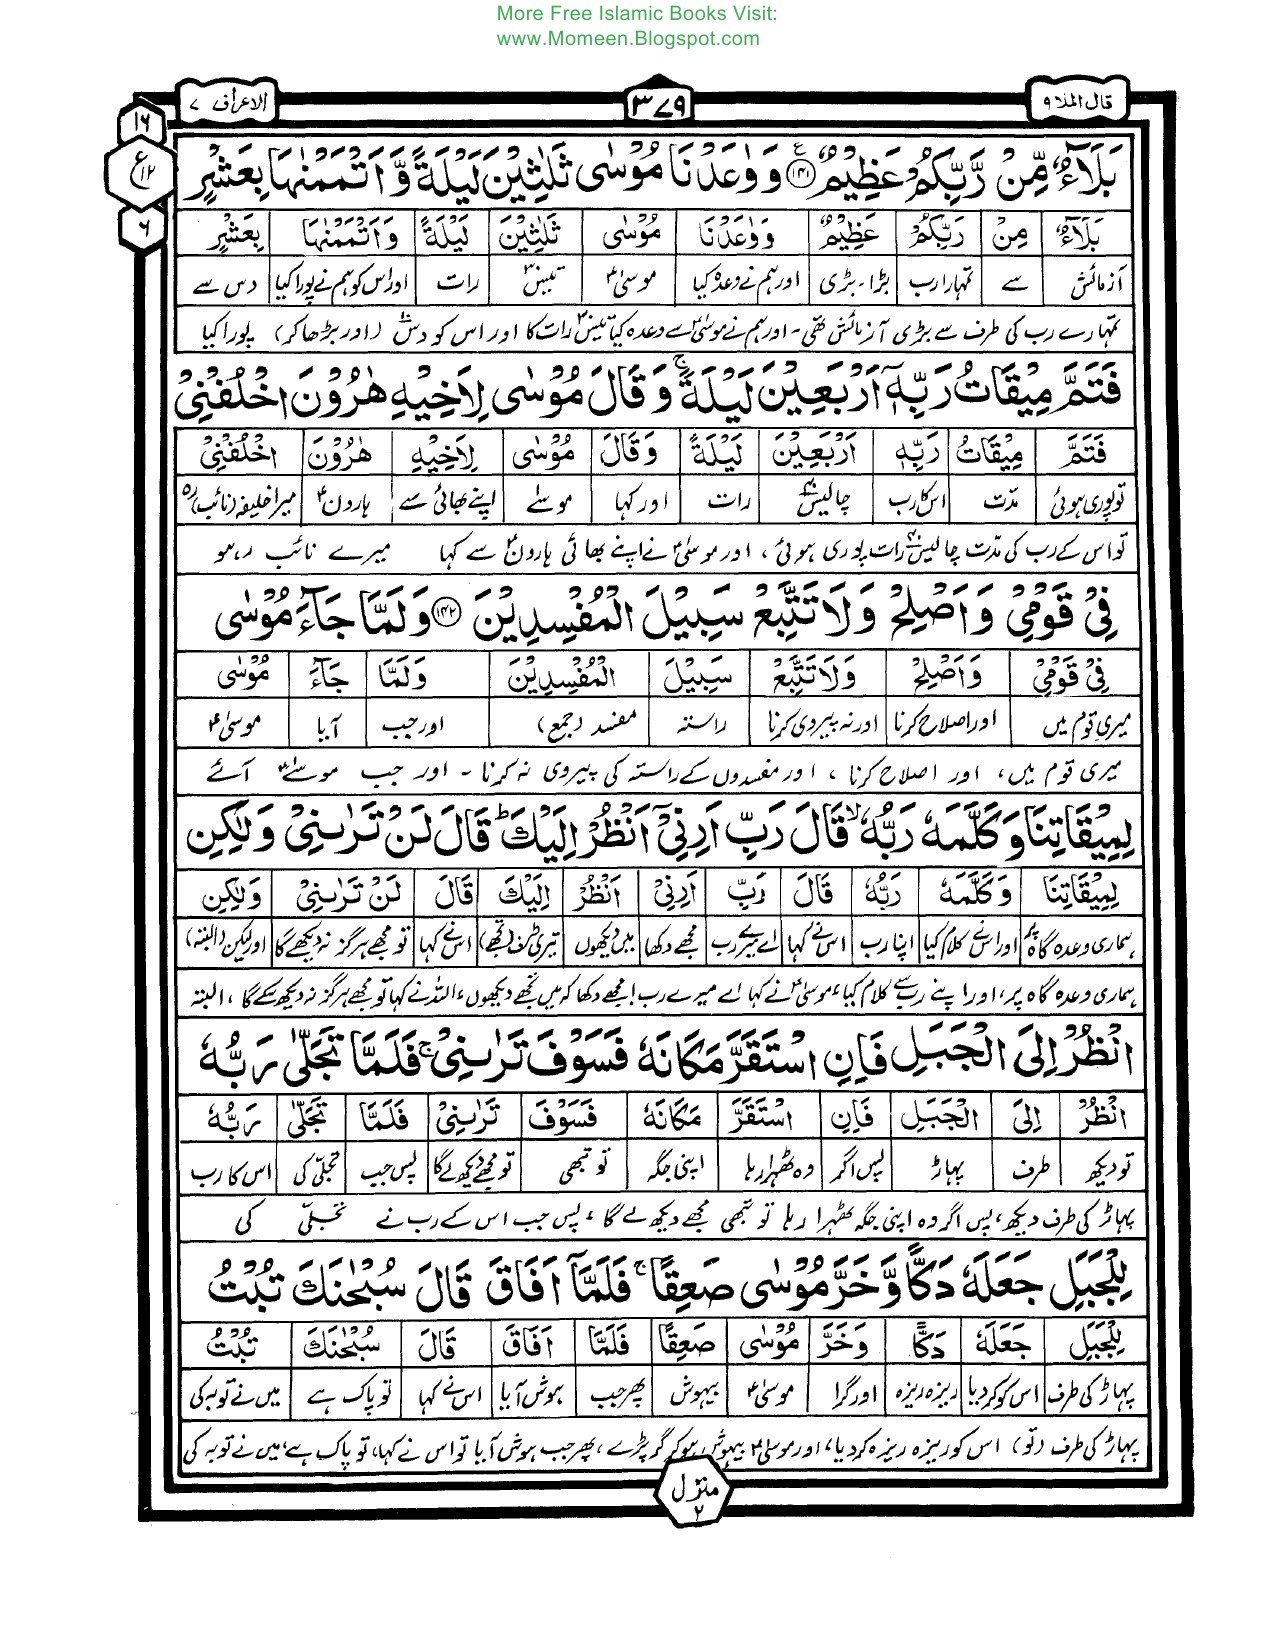 More Free Islamic Books Visit:
www.Momeen.Blogspot.com
قال الملا ۹
۳۷۹
الاعراف ۷
۱۶
ع
۱۲
۶
بَلَآءٌ مِّنْ رَّبِّكُمْ عَظِيْمٌ ﴿۱۴۱﴾ ع وَوٰعَدْنَا مُوْسٰى ثَلٰثِيْنَ لَيْلَةً وَّاَتْمَمْنٰهَا بِعَشْرٍ
بَلَآءٌ مِنْ رَبِّكُمْ عَظِيْمٌ وَوٰعَدْنَا مُوْسٰى ثَلٰثِيْنَ لَيْلَةً وَاَتْمَمْنٰهَا بِعَشْرٍ
آزمائش سے تمہارا رب بڑا۔ بڑی اور ہم نے وعدہ کیا موسیٰؑ تیس ۳۰ رات اور اس کو ہم نے پورا کیا دس سے
تمہارے رب کی طرف سے بڑی آزمائش تھی۔ اور ہم نے موسیٰؑ سے وعدہ کیا تیس ۳۰ رات کا اور اس کو دس ۱۰ (اور بڑھا کر) پورا کیا
فَتَمَّ مِيْقَاتُ رَبِّهٖٓ اَرْبَعِيْنَ لَيْلَةً ۚ وَقَالَ مُوْسٰى لِاَخِيْهِ هٰرُوْنَ اخْلُفْنِيْ
فَتَمَّ مِيْقَاتُ رَبِّهٖ اَرْبَعِيْنَ لَيْلَةً وَقَالَ مُوْسٰى لِاَخِيْهِ هٰرُوْنَ اخْلُفْنِيْ
تو پوری ہوئی مدّت اس کا رب چالیس ۴۰ رات اور کہا موسیٰ اپنے بھائی سے ہارونؑ میرا خلیفہ (نائب) رہ
تو اس کے رب کی مدّت چالیس ۴۰ رات پوری ہوئی، اور موسیٰؑ نے اپنے بھائی ہارونؑ سے کہا میرے نائب رہو
فِيْ قَوْمِيْ وَاَصْلِحْ وَلَا تَتَّبِعْ سَبِيْلَ الْمُفْسِدِيْنَ ﴿۱۴۲﴾ وَلَمَّا جَآءَ مُوْسٰى
فِيْ قَوْمِيْ وَاَصْلِحْ وَلَا تَتَّبِعْ سَبِيْلَ الْمُفْسِدِيْنَ وَلَمَّا جَآءَ مُوْسٰى
میری قوم میں اور اصلاح کرنا اور نہ پیروی کرنا راستہ مفسد (جمع) اور جب آیا موسیٰؑ
میری قوم میں، اور اصلاح کرنا، اور مفسدوں کے راستہ کی پیروی نہ کرنا۔ اور جب موسیٰؑ آئے
لِمِيْقَاتِنَا وَكَلَّمَهٗ رَبُّهٗ ۙ قَالَ رَبِّ اَرِنِيْٓ اَنْظُرْ اِلَيْكَ ؕ قَالَ لَنْ تَرٰىنِيْ وَلٰكِنِ
لِمِيْقَاتِنَا وَكَلَّمَهٗ رَبُّهٗ قَالَ رَبِّ اَرِنِيْ اَنْظُرْ اِلَيْكَ قَالَ لَنْ تَرٰىنِيْ وَلٰكِنِ
ہماری وعدہ گاہ پر اور اس نے کلام کیا اپنا رب اس نے کہا اے میرے رب مجھے دکھا میں دیکھوں تیری طرف (تجھے) اس نے کہا تو مجھے ہرگز نہ دیکھے گا اور لیکن (البتہ)
ہماری وعدہ گاہ پر، اور اپنے رب سے کلام کیا، موسیٰؑ نے کہا اے میرے رب! مجھے دکھا کہ میں تجھے دیکھوں، اللہ نے کہا تو مجھے ہرگز نہ دیکھ سکے گا، البتہ
انْظُرْ اِلَى الْجَبَلِ فَاِنِ اسْتَقَرَّ مَكَانَهٗ فَسَوْفَ تَرٰىنِيْ ۚ فَلَمَّا تَجَلّٰى رَبُّهٗ
انْظُرْ اِلَى الْجَبَلِ فَاِنِ اسْتَقَرَّ مَكَانَهٗ فَسَوْفَ تَرٰىنِيْ فَلَمَّا تَجَلّٰى رَبُّهٗ
تو دیکھ طرف پہاڑ پس اگر وہ ٹھہرا رہا اپنی جگہ تو تبھی تو مجھے دیکھ لے گا پس جب تجلّی کی اس کا رب
پہاڑ کی طرف دیکھ، پس اگر وہ اپنی جگہ ٹھہرا رہا تو تبھی مجھے دیکھ لے گا، پس جب اس کے رب نے تجلّی کی
لِلْجَبَلِ جَعَلَهٗ دَكًّا وَّخَرَّ مُوْسٰى صَعِقًا ۚ فَلَمَّآ اَفَاقَ قَالَ سُبْحٰنَكَ تُبْتُ
لِلْجَبَلِ جَعَلَهٗ دَكًّا وَخَرَّ مُوْسٰى صَعِقًا فَلَمَّا اَفَاقَ قَالَ سُبْحٰنَكَ تُبْتُ
پہاڑ کی طرف اس کو کر دیا ریزہ ریزہ اور گرا موسیٰؑ بیہوش پھر جب ہوش آیا اس نے کہا تو پاک ہے میں نے توبہ کی
پہاڑ کی طرف (تو) اس کو ریزہ ریزہ کر دیا، اور موسیٰؑ بیہوش ہو کر گر پڑے، پھر جب ہوش آیا تو اس نے کہا، تو پاک ہے، میں نے توبہ کی
منزل ۲